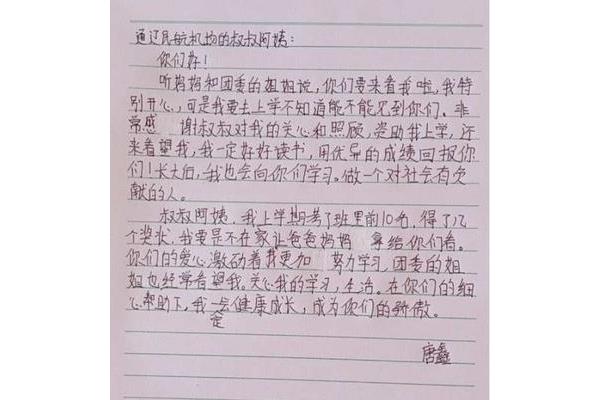 通辽民航机场的叔叔阿姨：
你们好！
听妈妈和团委的姐姐说，你们要来看我啦，我特
别开心，可是我要去上学不知道能不能见到你们。非
常感 谢叔叔对我的关心和照顾，资助我上学，还
来看望我，我一定好好读书，用优异的成绩回报你
们！长大后，我也会向你们学习。做一个对社会有贡
献的人。
叔叔阿姨，我上学期考了班里前10名，得了几
个奖状，我要是不在家让爸爸妈妈 拿给你们看。
你们的爱心激励着我更加 努力学习，团委的姐
姐也经常看望我。关心我的学习，生活。在你们的细
心帮助下，我一定会健康成长，成为你们的骄傲。
唐鑫